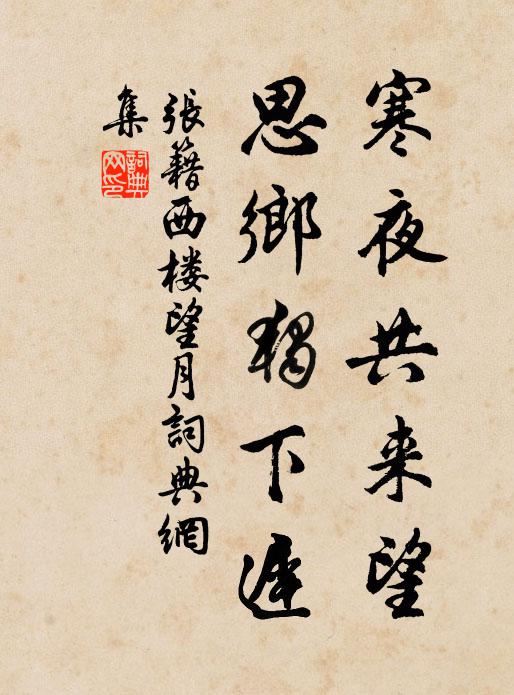 寒夜共来望
思鄉獨下遲
張籍西楼望月詞典網
集
詞典網印